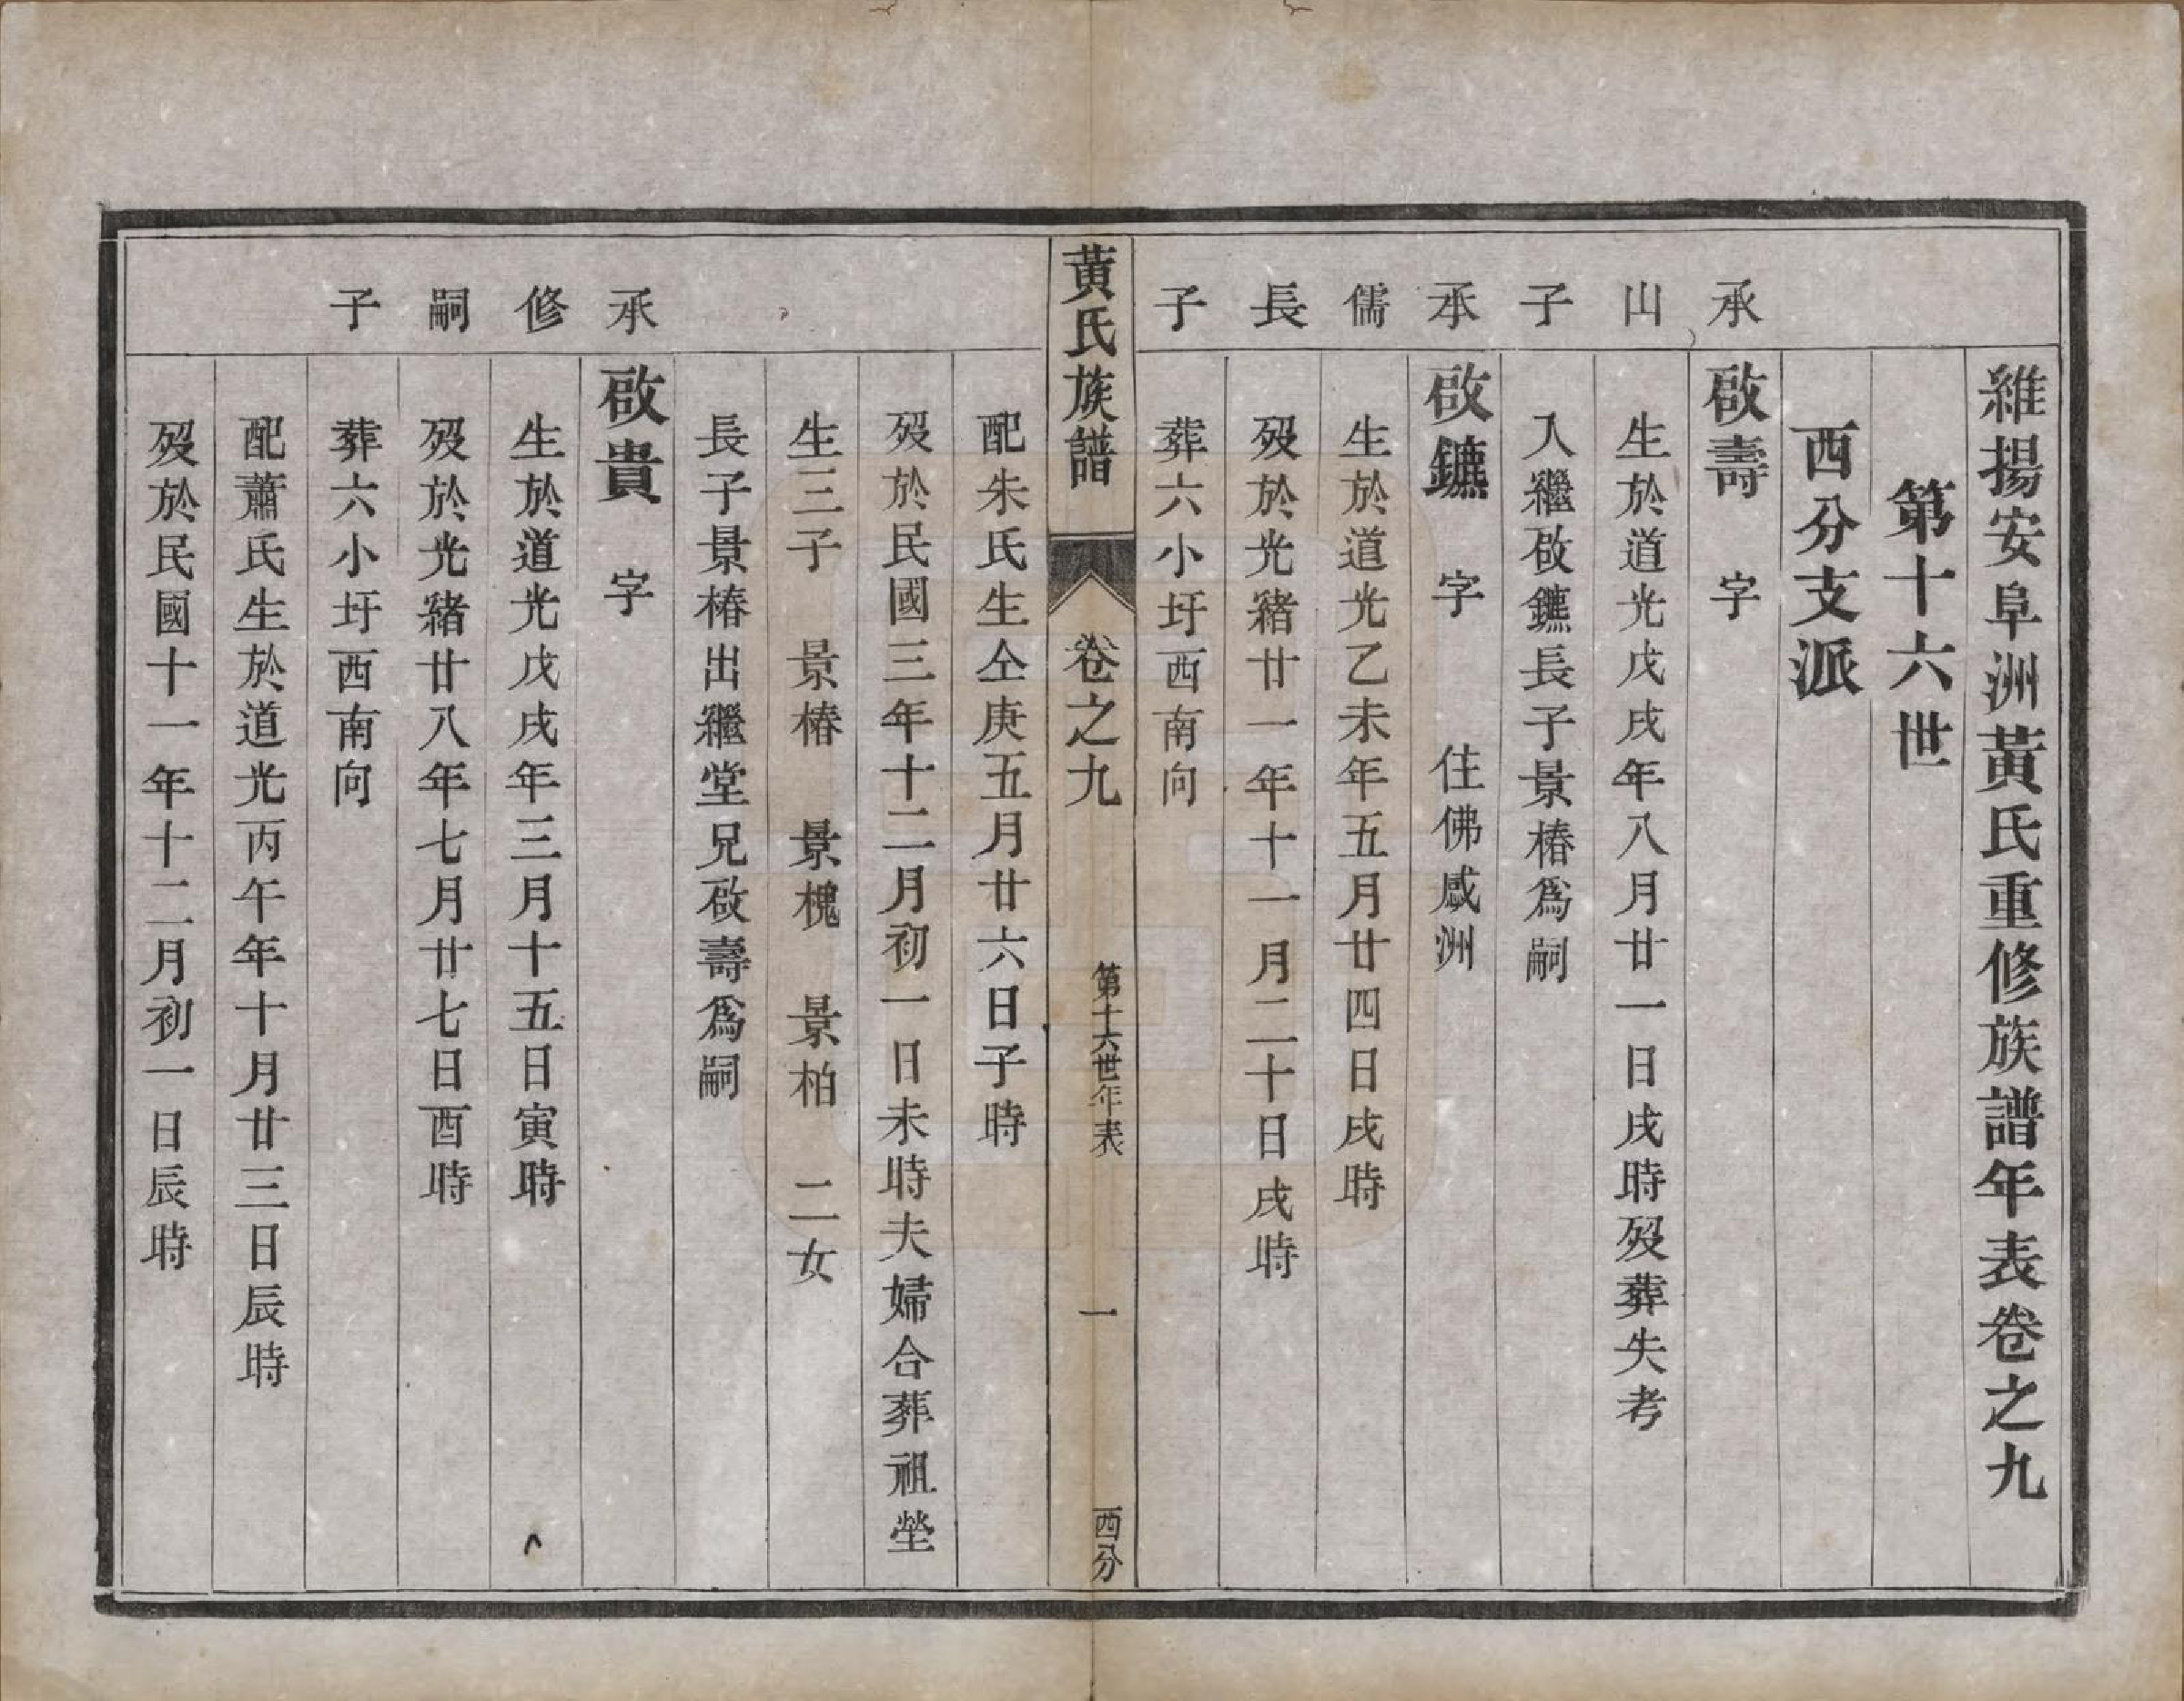 維揚安阜洲黃氏重修族譜年表卷之九
第十六世
西分支派
承 啟壽 字
山 生於道光戊戌年八月廿一日戌時歿葬失考
子 入繼啟鑣長子景椿爲嗣
承 啟鑣 字 住佛感洲
儒 生於道光乙未年五月廿四日戌時
長 歿於光緒廿一年十一月二十日戌時
子 葬六小圩西南向
黃氏族譜 卷之九 第十六世年表 一 西分
配朱氏生仝庚五月廿六日子時
歿於民國三年十二月初一日未時夫婦合葬祖塋
生三子 景椿 景槐 景柏 二女
長子景椿出繼堂兄啟壽爲嗣
承 啟貴 字
修 生於道光戊戌年三月十五日寅時
嗣 歿於光緒廿八年七月廿七日酉時
子 葬六小圩西南向
配蕭氏生於道光丙午年十月廿三日辰時
歿於民國十一年十二月初一日辰時